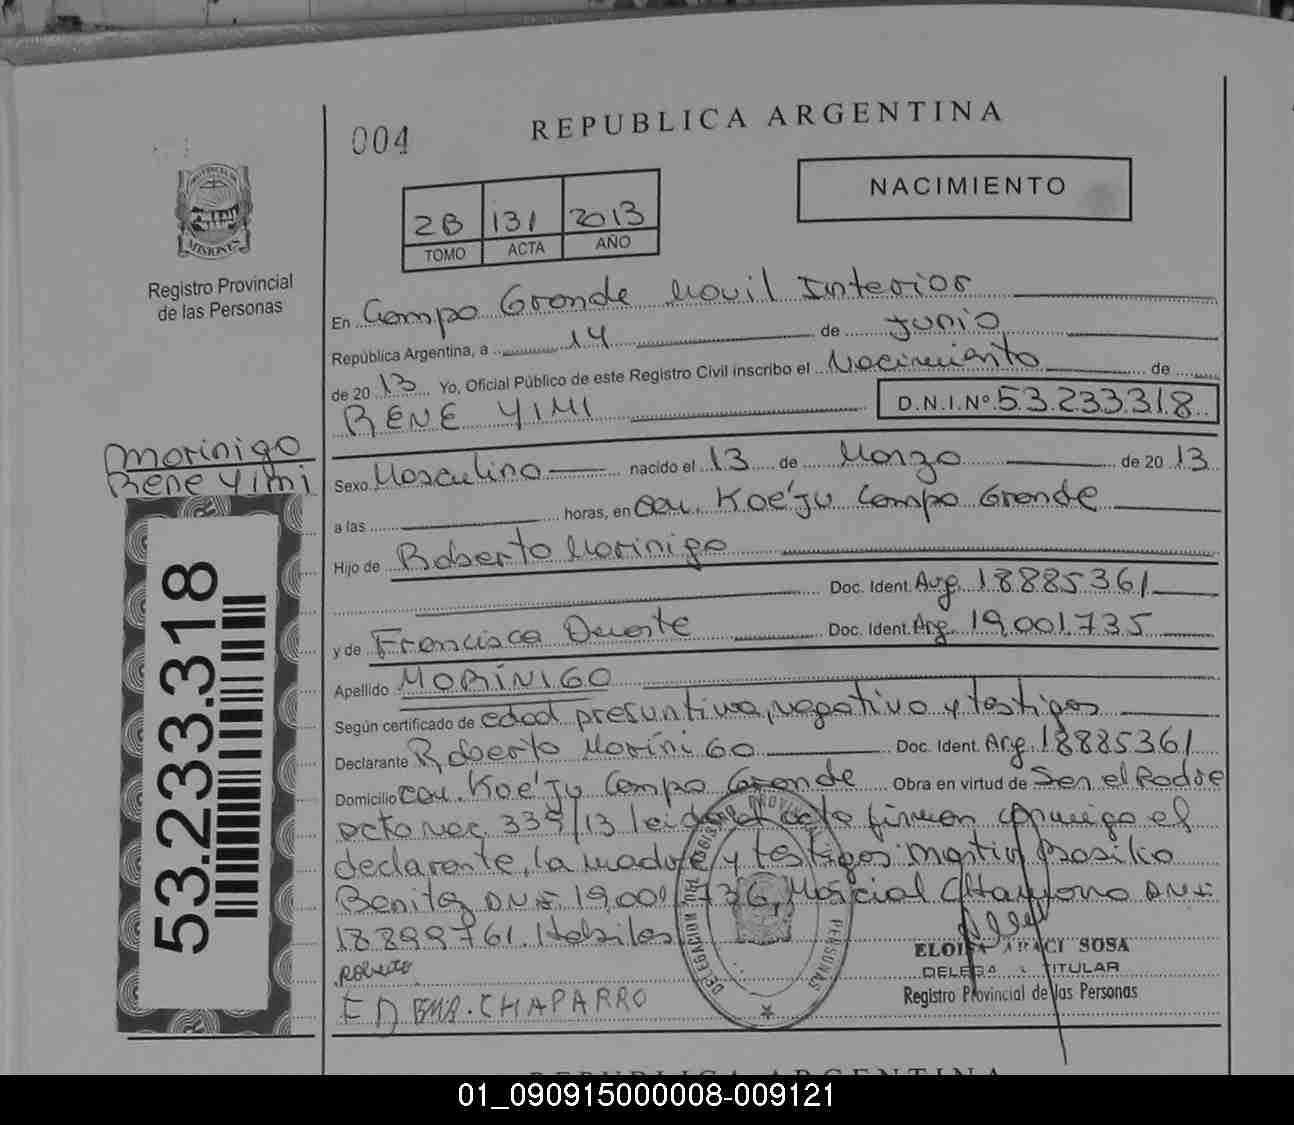 004
REPUBLICA ARGENTINA
NACIMIENTO
PROVINCIA DE
MISIONES
Registro Provincial
de las Personas
2B 131 2013
TOMO ACTA AÑO
En Campo Grande Movil Interior
República Argentina, a 14 de Junio
de 2013 Yo, Oficial Público de este Registro Civil inscribo el Nacimiento de
RENE YIMI D.N.I.Nº 53.233.318
Morinigo
Rene Yimi
Sexo Masculino nacido el 13 de Marzo de 2013
a las horas, en Cdu. Koe'Ju Campo Grande
Hijo de Roberto Morinigo
Doc. Ident. Arg. 18885361
y de Francisca Duarte Doc. Ident. Arg. 19.001.735
Apellido MORÍNIGO
Según certificado de edad presuntiva, negativo y testigos
Declarante Roberto Moríni Go Doc. Ident. Arg. 18885361
Domicilio Cdu. Koe'Ju Campo Grande Obra en virtud de Ser el Padre
acta nac 339/13 leida el acta firman conmigo el
declarante, la madre y testigos: Martin Basilio
Benitez DNI 19.001.736, Marcial Chamorro DNI
18899761. Habiles
Roberto
CHAPARRO
53.233.318
DELEGACION DEL REGISTRO PROVINCIAL PERSONAS
ELOISA ARACI SOSA
DELEGADA TITULAR
Registro Provincial de las Personas
REPUBLICA ARGENTINA
01_090915000008-009121